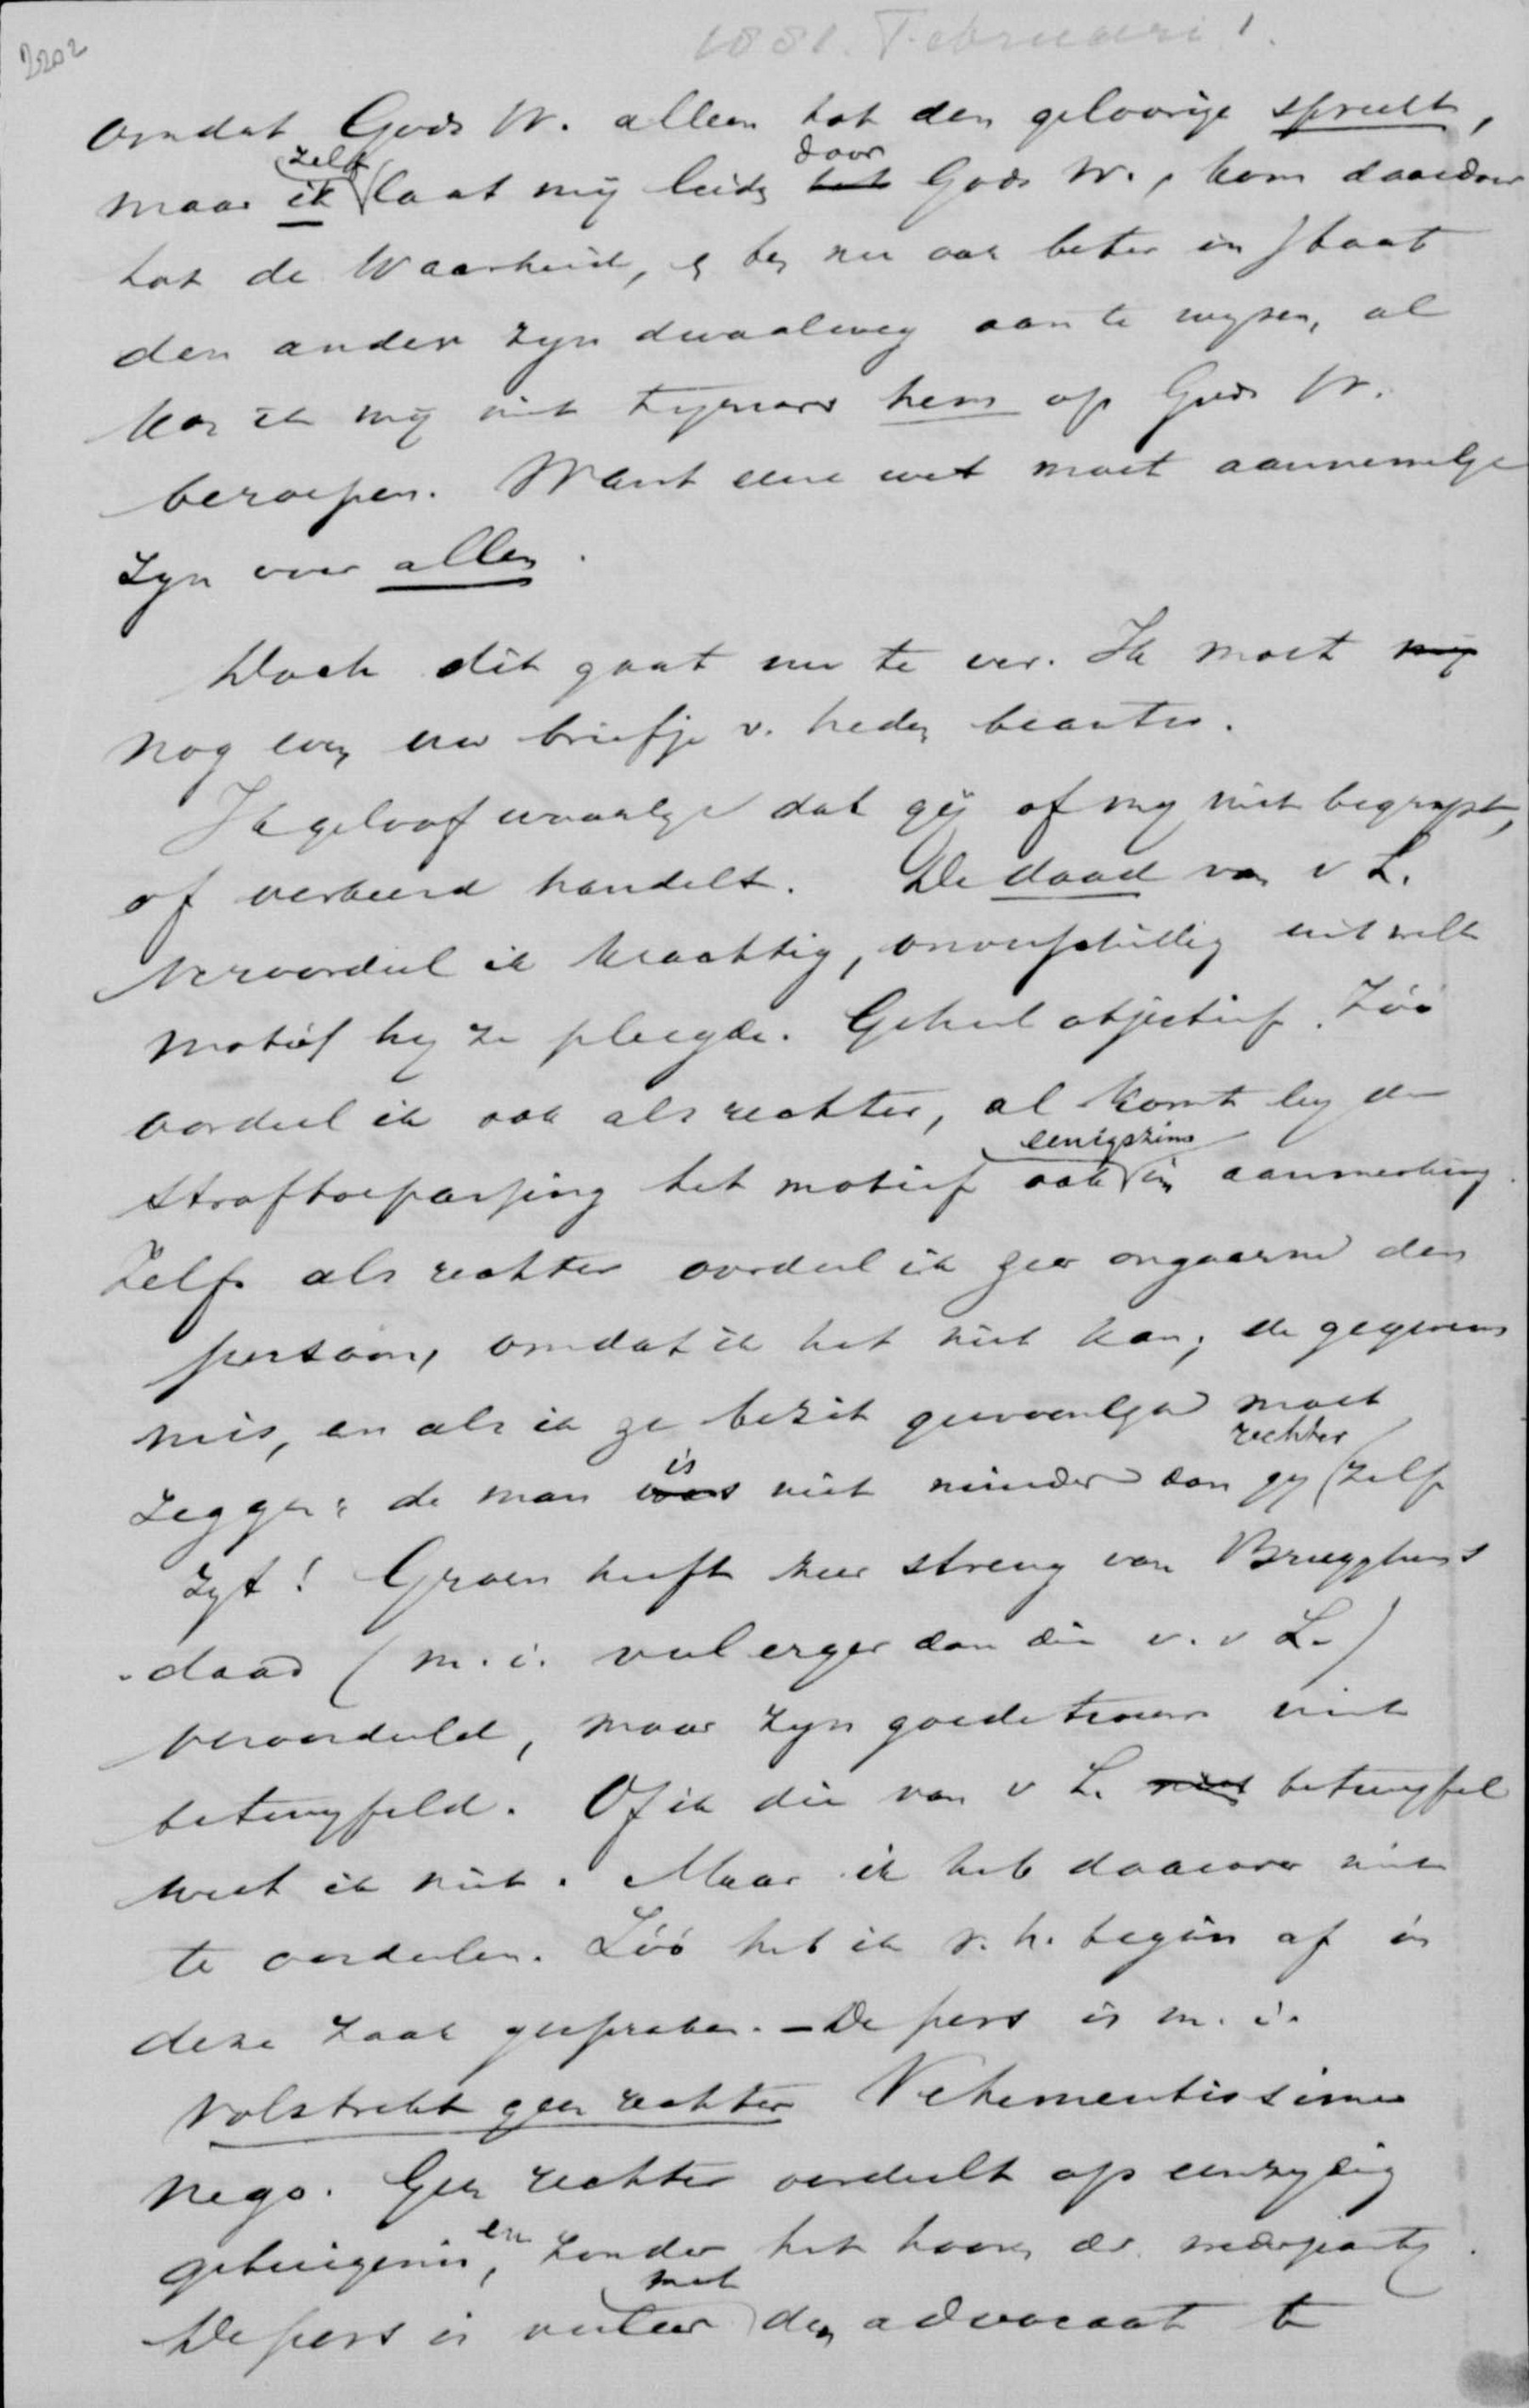 2202
1881. Februari 1.
omdat Gods W. alleen tot den geloovige spreekt,
maar ik zelf laat mij leiden door Gods W., kom daardoor
tot de Waarheid, en ben nu ook beter in staat
den ander zyn dwaalweg aan te wyzen, al
kan ik mij niet tegenover hem op Gods W.
beroepen. Want eene wet moet aannemelyk
zyn voor allen.
Doch dit gaat nu te ver. Ik moet mij
nog even uw briefje v. heden beantw.
Ik geloof waarlyk dat gij of my niet begrypt,
of verkeerd handelt. De daad van v L.
veroordeel ik krachtig, onverschillig uit welk
motief hy ze pleegde. Geheel objectief. Zóó
oordeel ik ook als rechter, al komt by de
straftoepassing het motief ook eenigszins in aanmerking.
Zelfs als rechter oordeel ik zeer ongaarne den
persoon, omdat ik het niet kan; de gegevens
mis, en als ik ze bezit gewoonlyk moet
zeggen: de man is niet minder dan gy rechter zelf
zyt! Groen heeft zeer streng van Brugghens
daad (m.i. veel erger dan die v. v L.)
veroordeeld, maar zyn goede trouw niet
betwyfeld. Of ik die van v L. niet betwyfel
weet ik niet. Maar ik heb daarover niet
te oordeelen. Zóó heb ik v. h. begin af in
deze zaak gesproken. – De pers is m.i.
volstrekt geen rechter Vehementissime
nego. Geen rechter oordeelt op eenzydig
getuigenis, en zonder het hooren der wederparty.
De pers is veeleer met den advocaat te